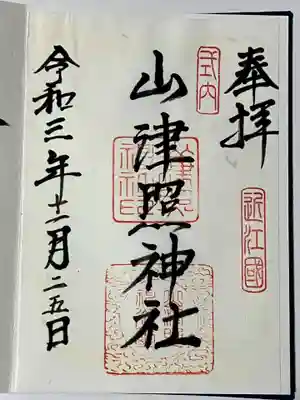 奉拝
近江國
式内
山津照神社
令和三年十二月二五日